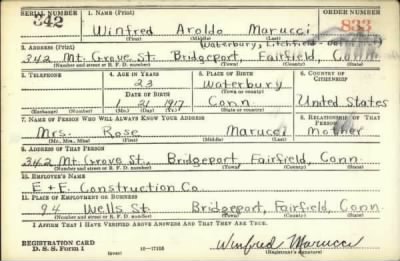 SERIAL NUMBER 1. NAME (Print) ORDER NUMBER
342 Winfred Aroldo Marucci 833
(First) (Middle) (Last)
2. ADDRESS (Print) Waterbury, Litchfield
342 Mt. Grove St. Bridgeport, Fairfield, Conn.
(Number and street or R. F. D. number) (Town) (County) (State)
3. TELEPHONE 4. AGE IN YEARS 5. PLACE OF BIRTH 6. COUNTRY OF CITIZENSHIP
23 Waterbury
DATE OF BIRTH (Town or county)
1 21 1917 Conn United States
(Exchange) (Number) (Mo.) (Day) (Yr.) (State or country)
7. NAME OF PERSON WHO WILL ALWAYS KNOW YOUR ADDRESS 8. RELATIONSHIP OF THAT PERSON
Mrs. Rose Marucci mother
(Mr., Mrs., Miss) (First) (Middle) (Last)
9. ADDRESS OF THAT PERSON
342 Mt. Grove St. Bridgeport, Fairfield, Conn.
(Number and street or R. F. D. number) (Town) (County) (State)
10. EMPLOYER'S NAME
E + E. Construction Co
11. PLACE OF EMPLOYMENT OR BUSINESS
94 Wells St. Bridgeport, Fairfield, Conn.
(Number and street or R. F. D. number) (Town) (County) (State)
I AFFIRM THAT I HAVE VERIFIED ABOVE ANSWERS AND THAT THEY ARE TRUE.
REGISTRATION CARD
D. S. S. Form 1 (over) Winfred Marucci
(Registrant's signature)